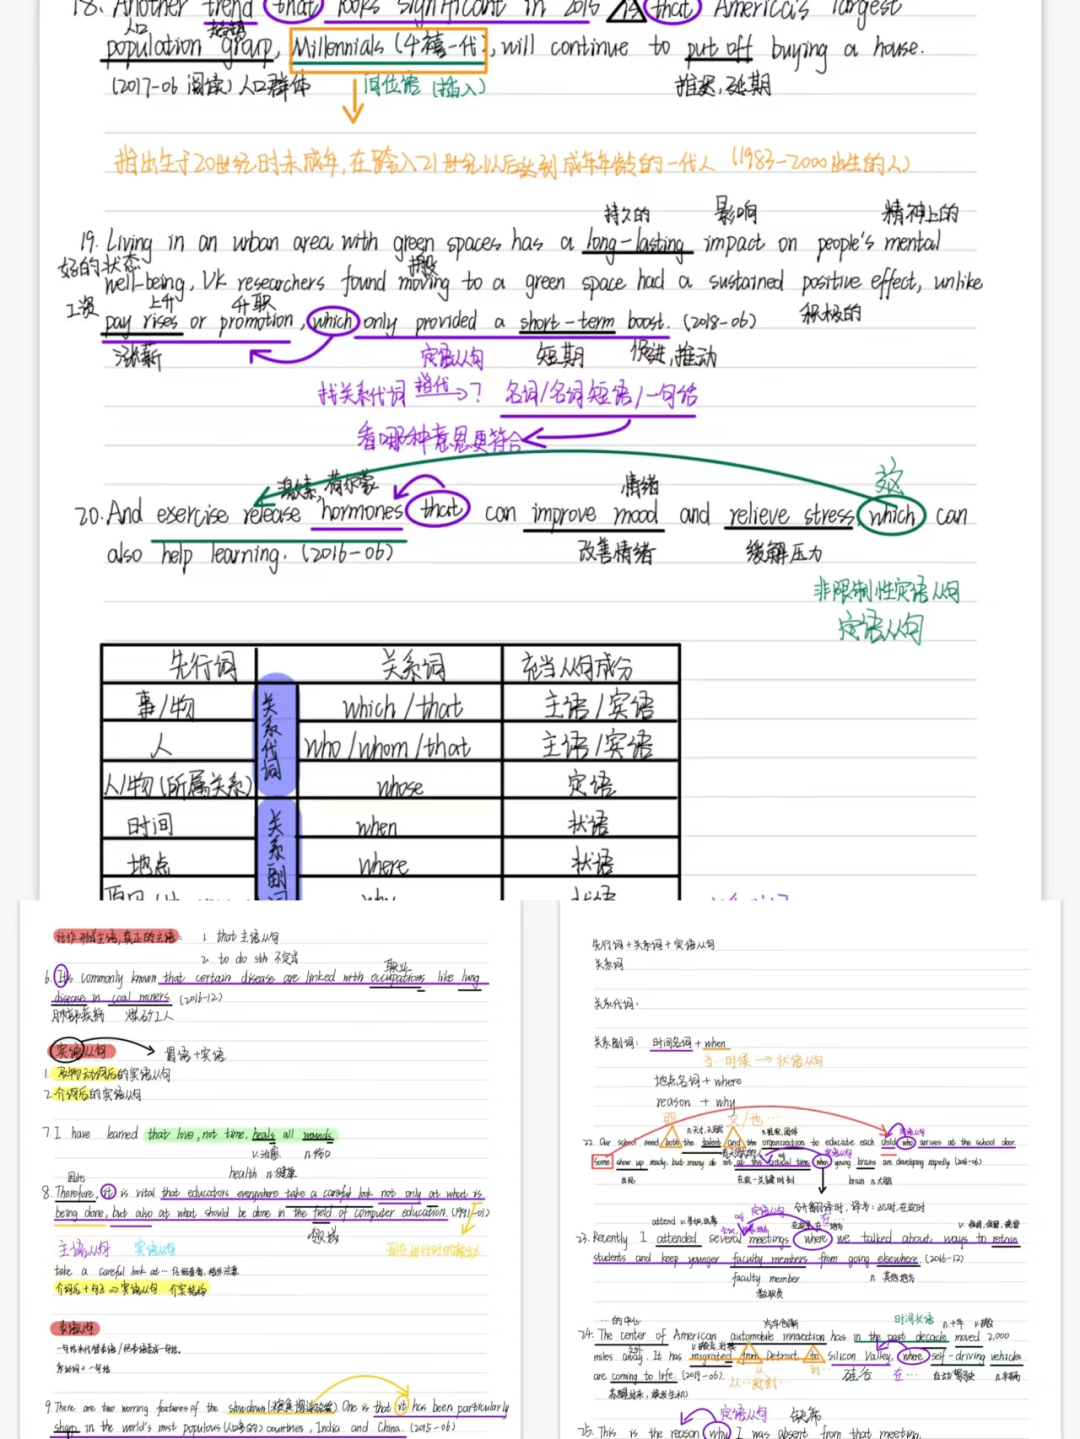 18. Another trend that looks significant in 2015 is that America's largest
人口 趋势
population group, Millennials (千禧一代), will continue to put off buying a house.
(2017-06 阅读) 人口群体 同位语 (插入) 推迟, 延期
指出生于20世纪时未成年,在跨入21世纪以后达到成年年龄的一代人 (1983-2000出生的人)
持久的 影响 精神上的
19. Living in an urban area with green spaces has a long-lasting impact on people's mental
好的状态 搬
well-being, UK researchers found moving to a green space had a sustained positive effect, unlike
工资 上升 升职 积极的
pay rises or promotion, which only provided a short-term boost. (2018-06)
涨薪 定语从句 短期 促进,推动
找关系代词 指代 → ? 名词/名词短语/一句话
看哪种意思更符合
激素, 荷尔蒙 情绪 这
20. And exercise release hormones that can improve mood and relieve stress, which can
also help learning. (2016-06) 改善情绪 缓解压力
非限制性定语从句
定语从句
先行词 关系词 充当从句成分
事/物 which/that 主语/宾语
关系代词
人 who/whom/that 主语/宾语
人/物(所属关系) whose 定语
时间 when 状语
关系副词
地点 where 状语
it作形式主语,真正的主语: 1. that 主语从句
2. to do sth 不定式
职业
6. It's commonly known that certain disease are linked with occupations like lung
disease in coal miners. (2016-12)
肺部疾病 煤矿工人
宾语从句 → 胃语+宾语
1. 及物动词后的宾语从句
2. 介词后的宾语从句
7. I have learned that love, not time, heals all wounds.
v.治愈 n.伤口
health n.健康
因此
8. Therefore, it is vital that educators everywhere take a careful look not only at what is
being done, but also at what should be done in the field of computer education. (1991-01)
领域
主语从句 宾语从句 现在进行时的被动
take a careful look at… 仔细查看,格外注意
介词后+句子 => 宾语从句 介宾结构
表语从句
系动词+一句话
9. There are two worrying features of the slowdown One is that it has been particularly
sharp in the world's most populous (人口多的) countries, India and China. (2015-06)
先行词+关系词+定语从句
关系词
关系代词:
关系副词: 时间名词+when
当…时候 → 状语从句
地点名词+where
reason + why
22. Our school need both the talent and the organization to educate each child who arrives at the school door.
Some show up ready, but many do not at this critical time when young brains are developing rapidly (2016-06)
出现 在这一关键时刻 brain n.大脑
attend v.参加,出席 定语从句
23. Recently I attended several meetings where we talked about ways to retain
students and keep younger faculty members from going elsewhere. (2016-12)
faculty member n. 其他地方
教职员
…的中心 汽车创新 时间状语 n.十年
24. The center of American automobile innovation has in the past decade moved 2,000
miles away. It has migrated from Detroit to Silicon Valley, where self-driving vehicles
are coming to life. (2019-06) 从…到… 硅谷 在… 自动驾驶 n.车辆
定语从句 缺席
25. This is the reason why I was absent from that meeting.